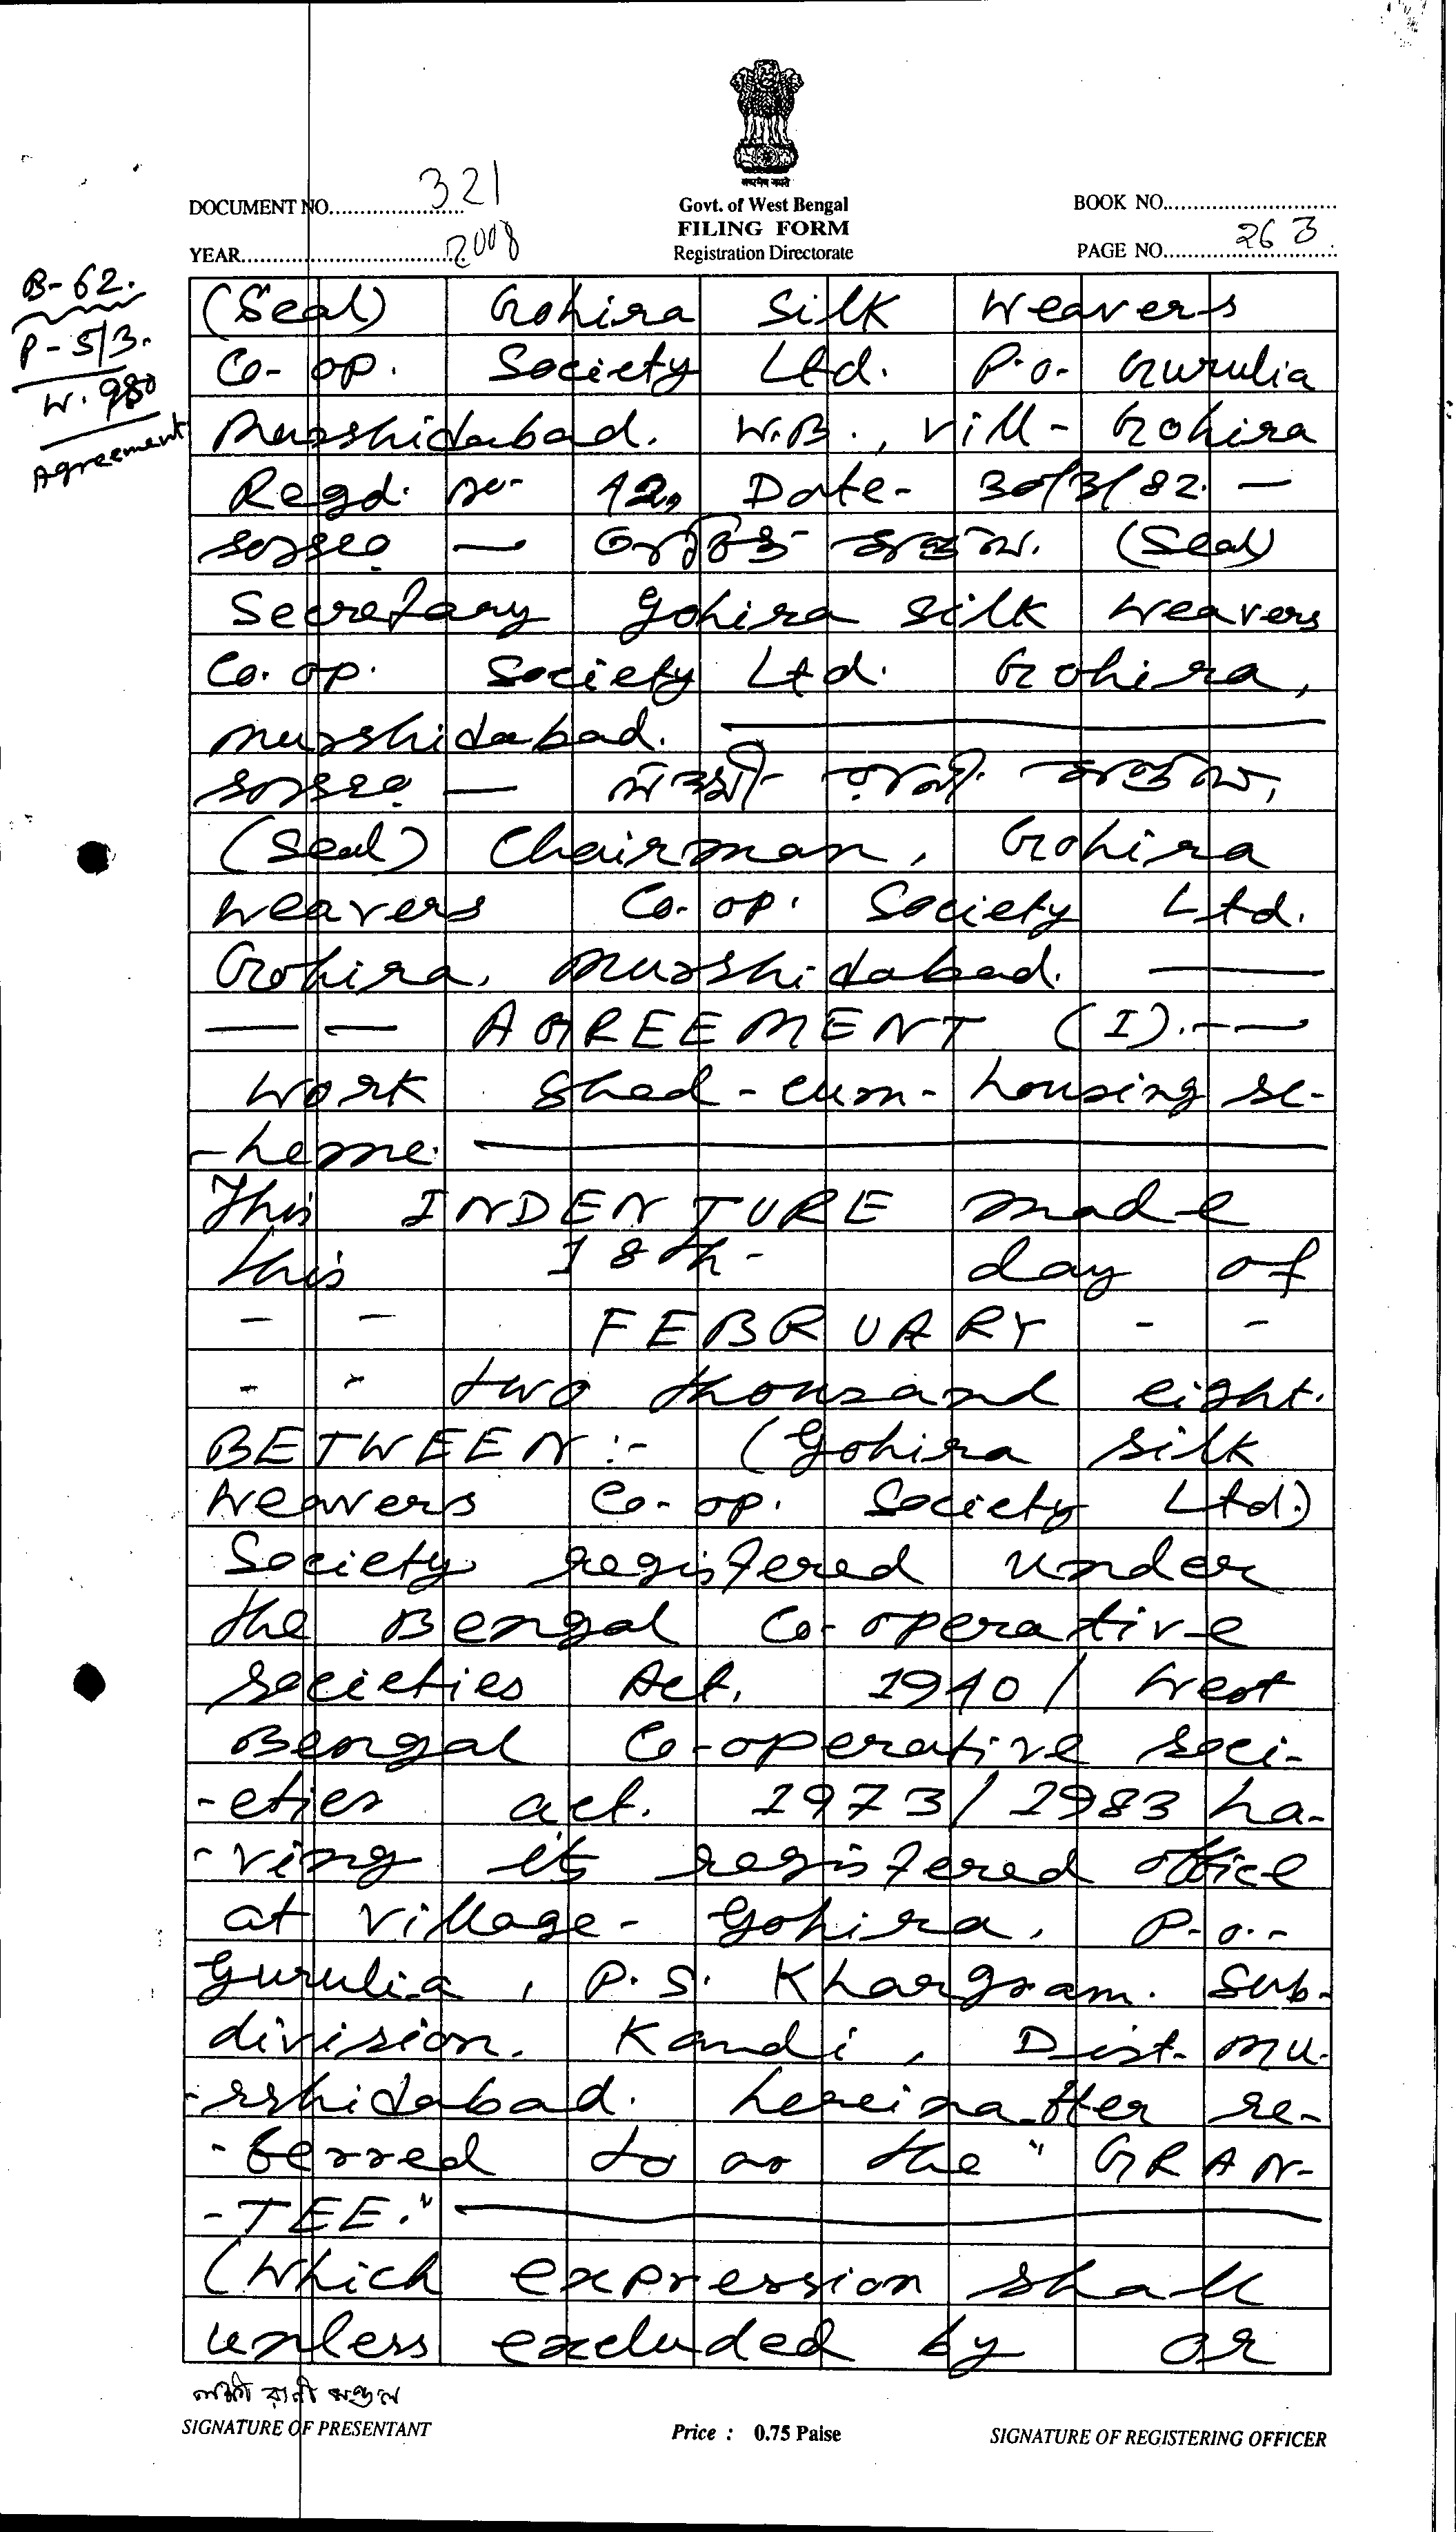 सत्यमेव जयते
DOCUMENT NO. 321
Govt. of West Bengal
BOOK NO.
FILING FORM
YEAR 2008
Registration Directorate
PAGE NO. 263
B-62.
P-513.
W. 980
Agreement
(Seal) Gohira Silk Weavers
Co-op. Society Ltd. P.o- Gurulia
Murshidabad. W.B., Vill- Gohira
Regd. no- 12, Date- 30/3/82. —
— মণ্ডল. (Seal)
Secretary Gohira Silk Weavers
Co. op. Society Ltd. Gohira,
Murshidabad.
— লক্ষ্মী রানী মণ্ডল,
(Seal) Chairman, Gohira
Weavers Co-op. Society Ltd.
Gohira, Murshidabad. —
— — AGREEMENT (I). — —
Work Shed-cum-housing sc-
-heme.
This INDENTURE made
this 18th- day of
- - FEBRUARY - -
- - two thousand eight.
BETWEEN :- (Gohira Silk
Weavers Co-op. Society Ltd.)
Society registered under
the Bengal Co-operative
Societies Act, 1940/ West
Bengal Co-operative Soci-
-eties act. 1973/1983 ha-
-ving its registered office
at village- Gohira, P.o.-
Gurulia, P.S. Khargram. Sub-
division. Kandi, Dist- Mu-
-rshidabad. hereinafter re-
-ferred to as the "GRAN-
-TEE."
(Which expression shall
unless excluded by or
লক্ষ্মী রানী মণ্ডল
SIGNATURE OF PRESENTANT
Price : 0.75 Paise
SIGNATURE OF REGISTERING OFFICER